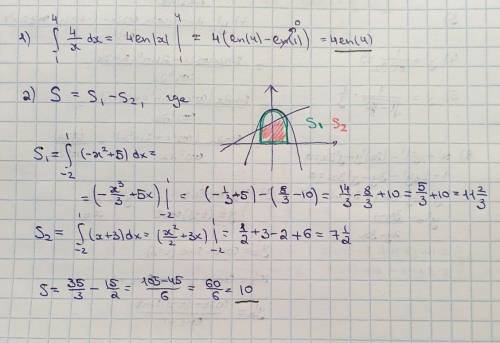 1) ∫₁⁴ 4/x dx = 4ln|x| |₁⁴ = 4(ln(4) - ln(1)) = 4ln(4)
0
2) S = S₁ - S₂, где
S₁ S₂
S₁ = ∫₋₂¹ (-x²+5) dx =
= (-x³/3 + 5x) |₋₂¹ = (-1/3 + 5) - (8/3 - 10) = 14/3 - 8/3 + 10 = 5/3 + 10 = 11 2/3
S₂ = ∫₋₂¹ (x+3) dx = (x²/2 + 3x) |₋₂¹ = 1/2 + 3 - 2 + 6 = 7 1/2
S = 35/3 - 15/2 = 105-45/6 = 60/6 = 10